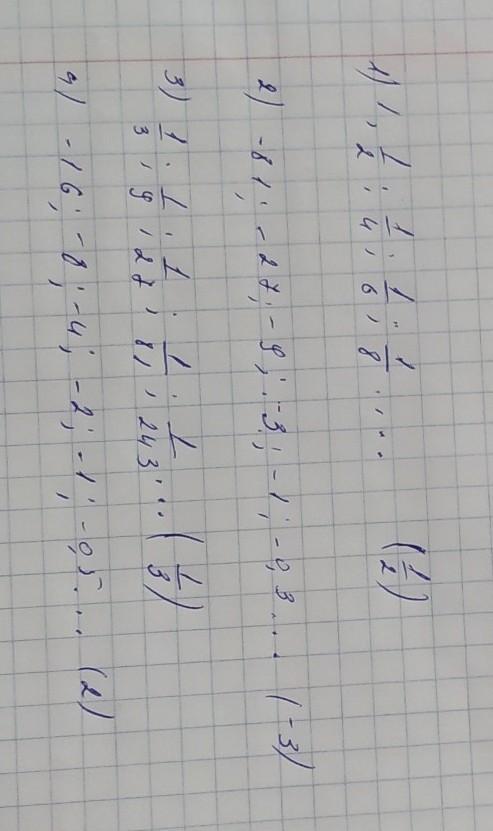 1) 1; 1/2; 1/4; 1/6; 1/8 .... (1/2)
2) -81; -27; -9; -3; -1; -0,3 ... (-3)
3) 1/3; 1/9; 1/27; 1/81; 1/243 ... (1/3)
4) -16; -8; -4; -2; -1; -0,5 ... (2)